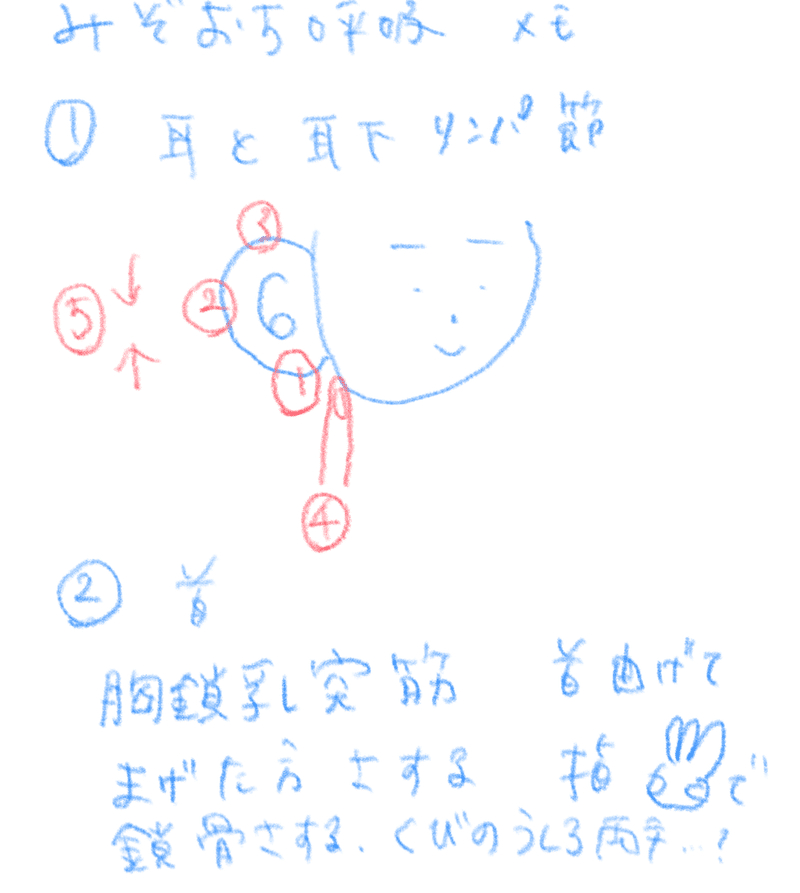 みぞおち呼吸 メモ
① 耳と耳下リンパ節
③
⑤ ↓ ② 6
↑ ①
④
② 首
胸鎖乳突筋 首曲げて
まげた方さする 指で
鎖骨さする、くびのうしろ両手…?